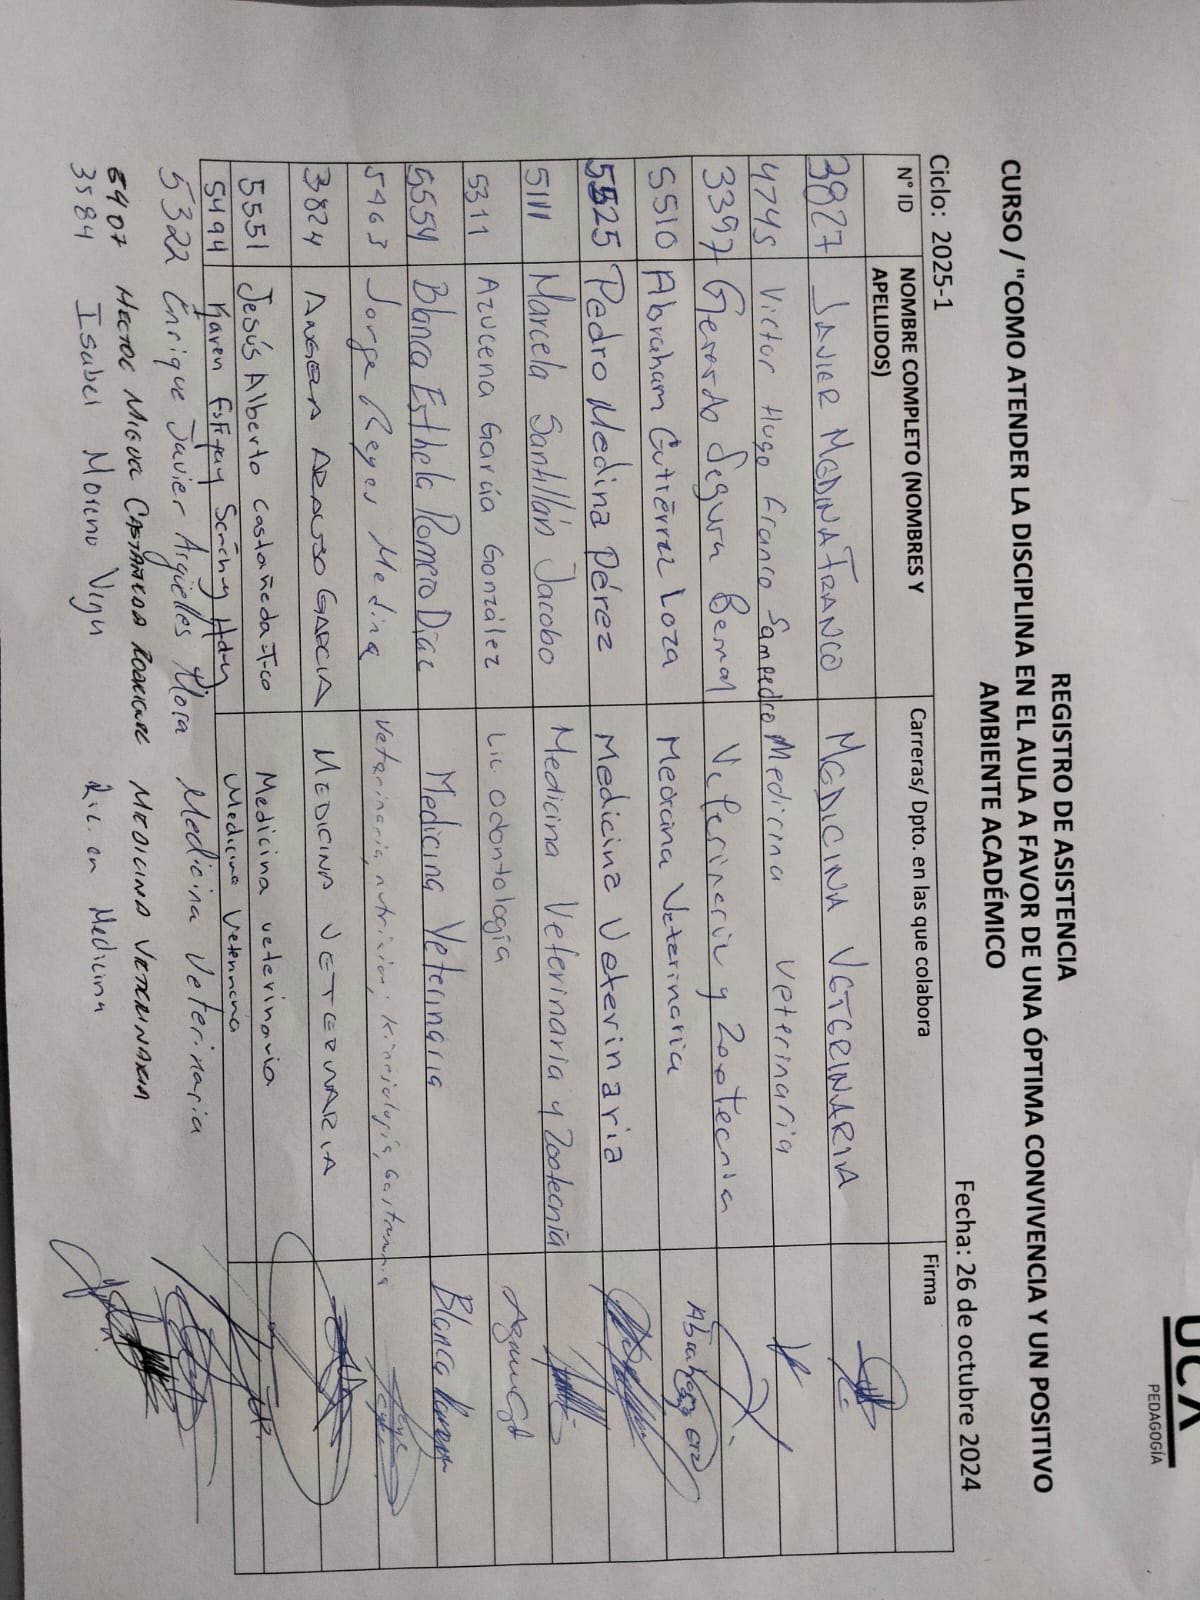 UCX
PEDAGOGÍA
REGISTRO DE ASISTENCIA
CURSO / "COMO ATENDER LA DISCIPLINA EN EL AULA A FAVOR DE UNA ÓPTIMA CONVIVENCIA Y UN POSITIVO
AMBIENTE ACADÉMICO
Ciclo: 2025-1 Fecha: 26 de octubre 2024
N° ID NOMBRE COMPLETO (NOMBRES Y APELLIDOS) Carreras/ Dpto. en las que colabora Firma
3827 JAVIER MEDINA FRANCO MEDICINA VETERINARIA
4745 Victor Hugo Franco Sampedro Medicina Veterinaria
3397 Gerardo Segura Bernal Veterinaria y Zootecnia
5510 Abraham Gutiérrez Loza Medicina Veterinaria Abraham Gtz
5525 Pedro Medina Pérez Medicina Veterinaria
5111 Marcela Santillán Jacobo Medicina Veterinaria y Zootecnia
5311 Azucena García González Lic. Odontología
5554 Blanca Esthela Romero Díaz Medicina Veterinaria Blanca
5463 Jorge Reyes Medina Veterinaria, nutricion, kinesiología,
3824 ARAUJO GARCIA MEDICINA VETERINARIA
5551 Jesús Alberto Castañeda Medicina veterinaria
5494 Karen Medicina Veterinaria
5322 Enrique Javier Argüelles Mora Medicina Veterinaria
5407 HECTOR MIGUEL MEDICINA VETERINARIA
3584 Isabel Moreno Lic. en Medicina